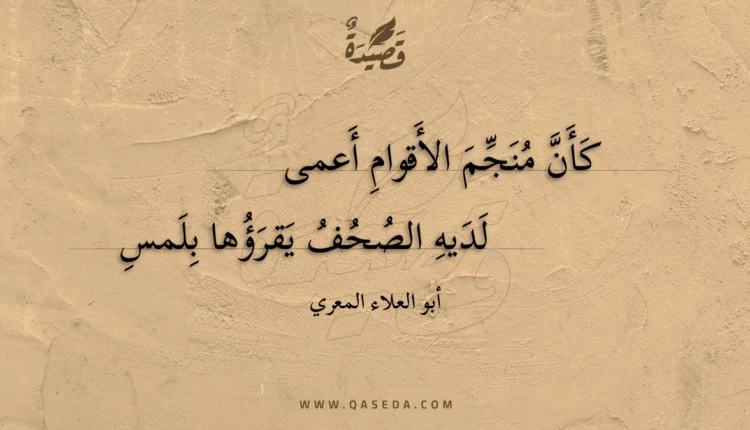 قَصِيْدَةٌ
كَأَنَّ مُنَجِّمَ الأَقوامِ أَعمى
لَدَيهِ الصُحُفُ يَقرَؤُها بِلَمسِ
أبو العلاء المعري
WWW.QASEDA.COM